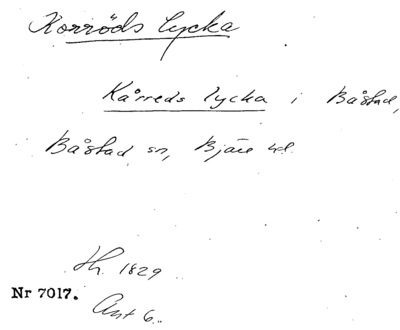 Korröds lycka
Kårreds lycka i Båstad,
Båstad sn, Bjäre hd.
Lh. 1829
Nr 7017.
Ant 6.